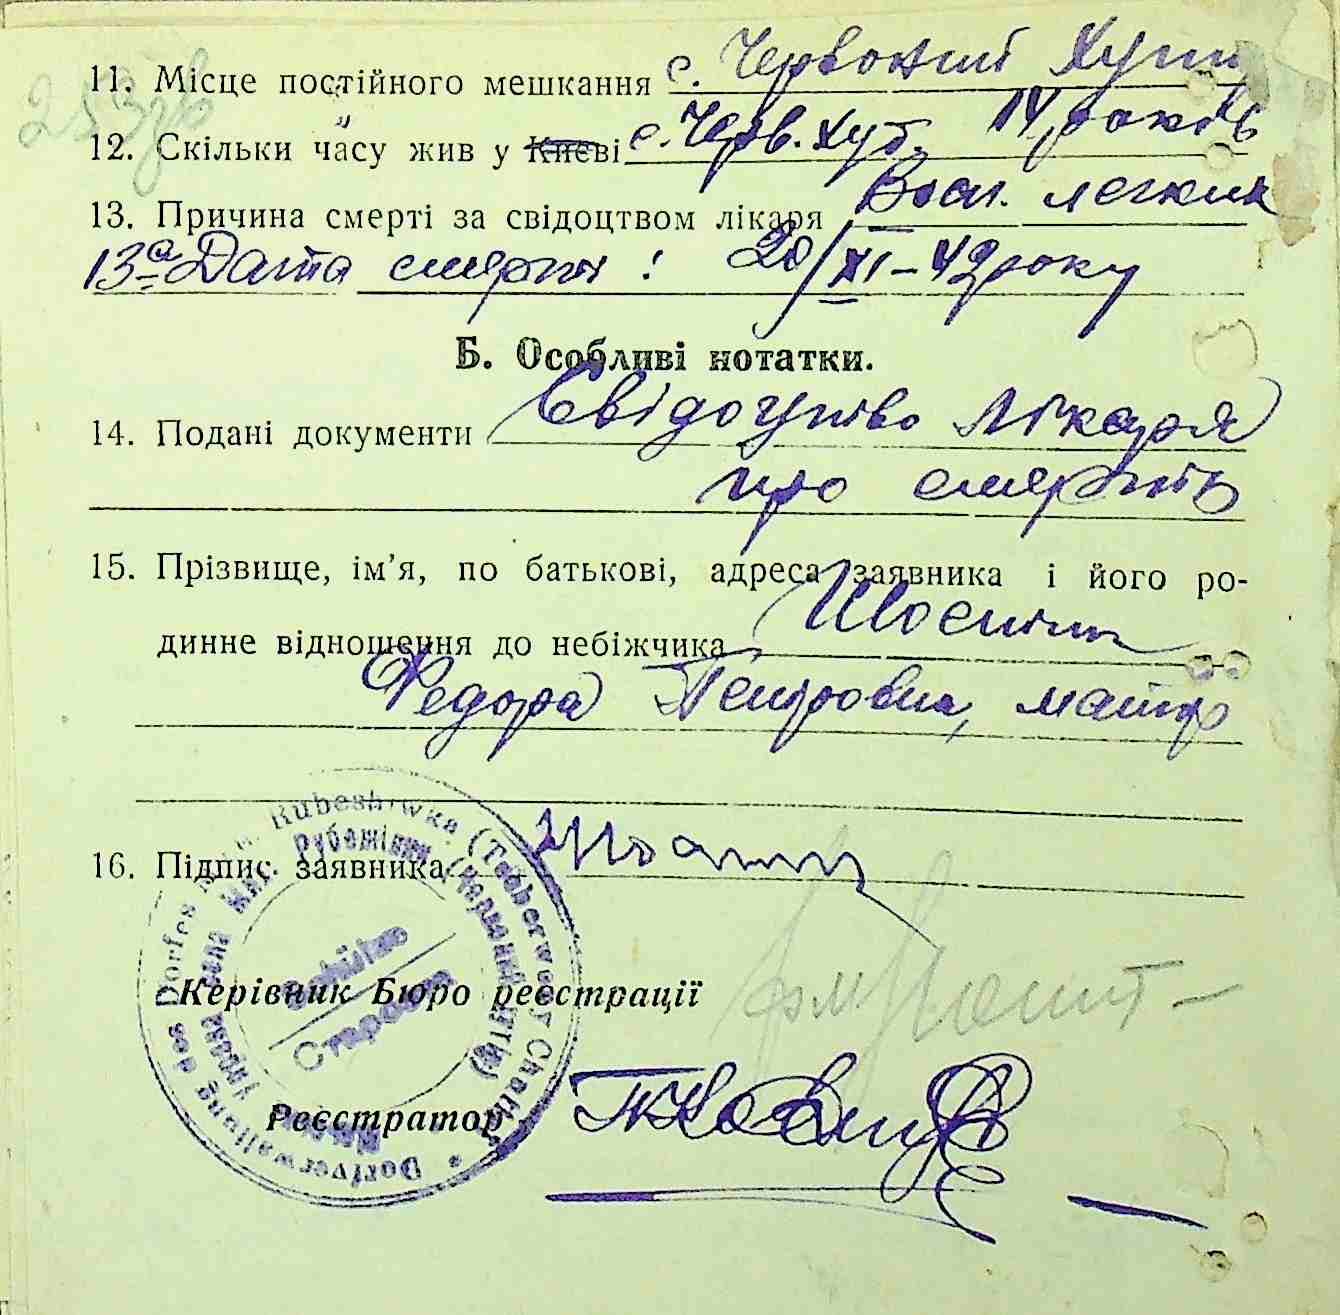 11. Місце постійного мешкання с. Червоний Хут
12. Скільки часу жив у Києві с. Черв. Хут. 14 років
13. Причина смерті за свідоцтвом лікаря Восп. легких
13а Дата смерти: 20/XI-42 року
Б. Особливі нотатки.
14. Подані документи Свідоцтво лікаря
про смерть
15. Прізвище, ім’я, по батькові, адреса заявника і його ро-
динне відношення до небіжчика
Федора Петровна, матір
16. Підпис заявника
Керівник Бюро реєстрації
Реєстратор
Dorfverwaltung des Dorfes
Староста